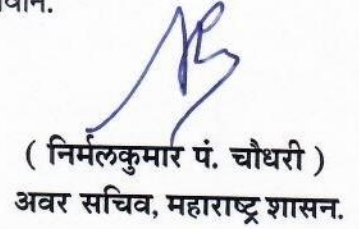 ( निर्मलकुमार पं. चौधरी )
अवर सचिव, महाराष्ट्र शासन.